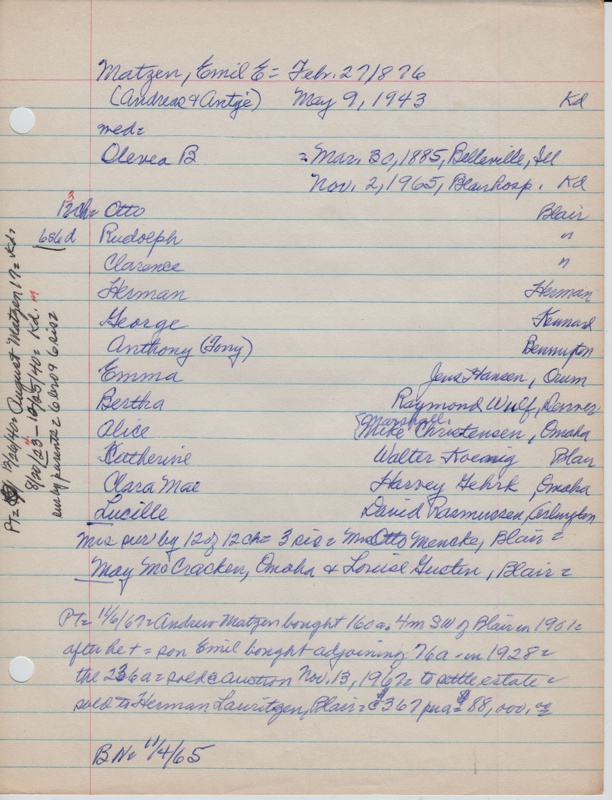 Matzen, Emil E = Febr. 27 1876
(Andreas & Antje) May 9, 1943 Kd
med=
Olevea B = Mar. 30, 1885, Belleville, Ill
Nov. 2, 1965, Blair hosp. Kd
Otto Blair
6s6d Rudolph "
Clarence "
Herman Herman
George Kennard
Anthony (Tony) Bennington
Emma Jens Hansen, Orum
Bertha Raymond Wulf, Denver
Marshall
Alice (Mike Christensen, Omaha
Katherine Walter Koenig Blair
Clara Mae Harvey Gehrk, Omaha
Lucille David Rasmussen, Arlington
Mrs sur by 12 of 12 ch = 3 sis = Mrs Otto Mencke, Blair =
May McCracken, Omaha & Louise Gustin, Blair =
Pt= 11/6/67 = Andrew Matzen bought 160 a. 4m SW of Blair in 1901=
after he + = son Emil bought adjoining 76a. in 1928=
the 236a = sold @ auction Nov. 13, 1967= to settle estate =
sold to Herman Lauritzen, Blair = @ $367 pr a = $88,000.
BN= 11/4/65
August Matzen 17= Kd=
sur by parents = 6 bro 9 6 sis =